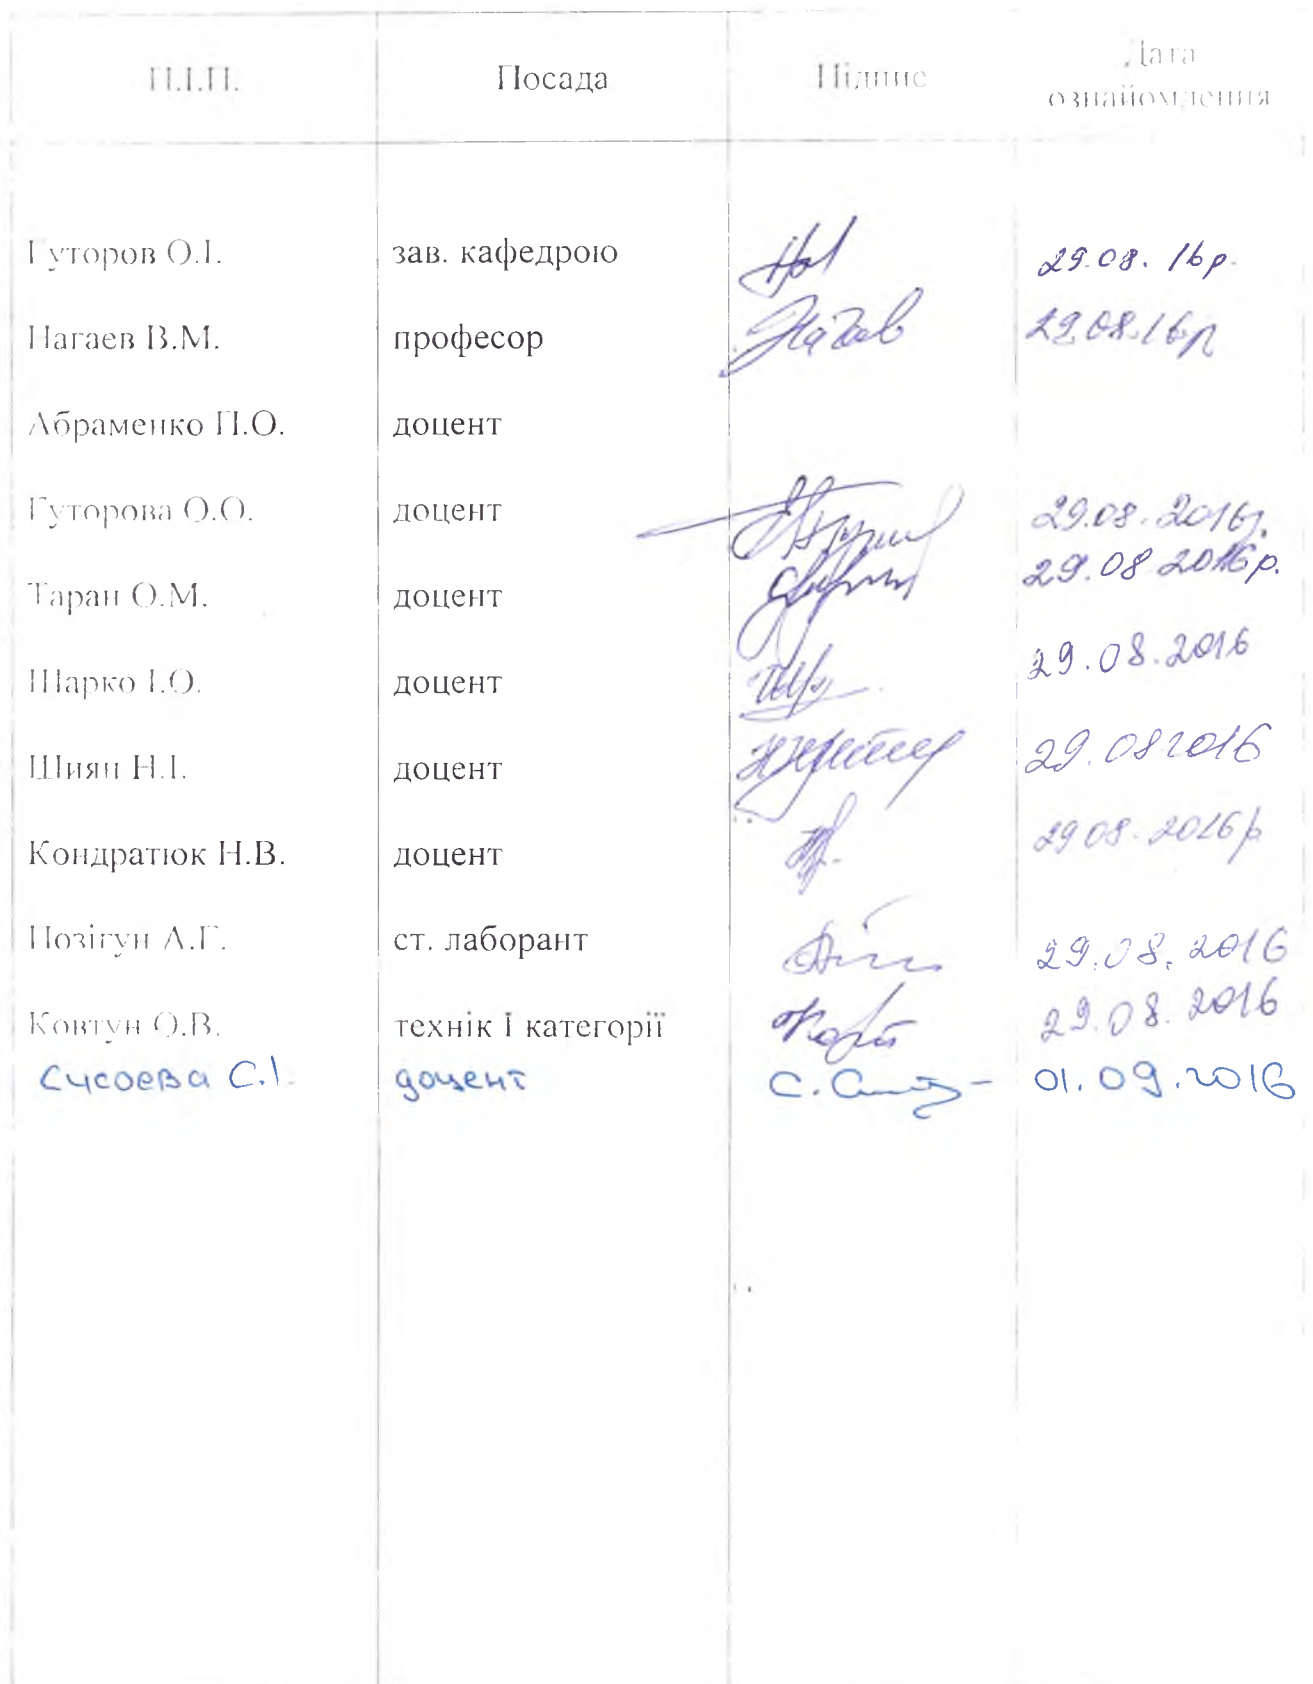 П.І.П. Посада Підпис Дата ознайомлення
Гуторов О.І. зав. кафедрою 29.08.16р.
Нагаєв В.М. професор Нагаєв 29.08.16р
Абраменко П.О. доцент
Гуторова О.О. доцент 29.08.2016р.
Таран О.М. доцент 29.08 2016р.
Шарко І.О. доцент 29.08.2016
Шиян Н.І. доцент 29.08 2016
Кондратюк Н.В. доцент 29 08.2016р
Позігун А.Г. ст. лаборант 29.08.2016
Ковтун О.В. технік І категорії 29.08.2016
Сусоєва С.І. доцент 01.09.2016